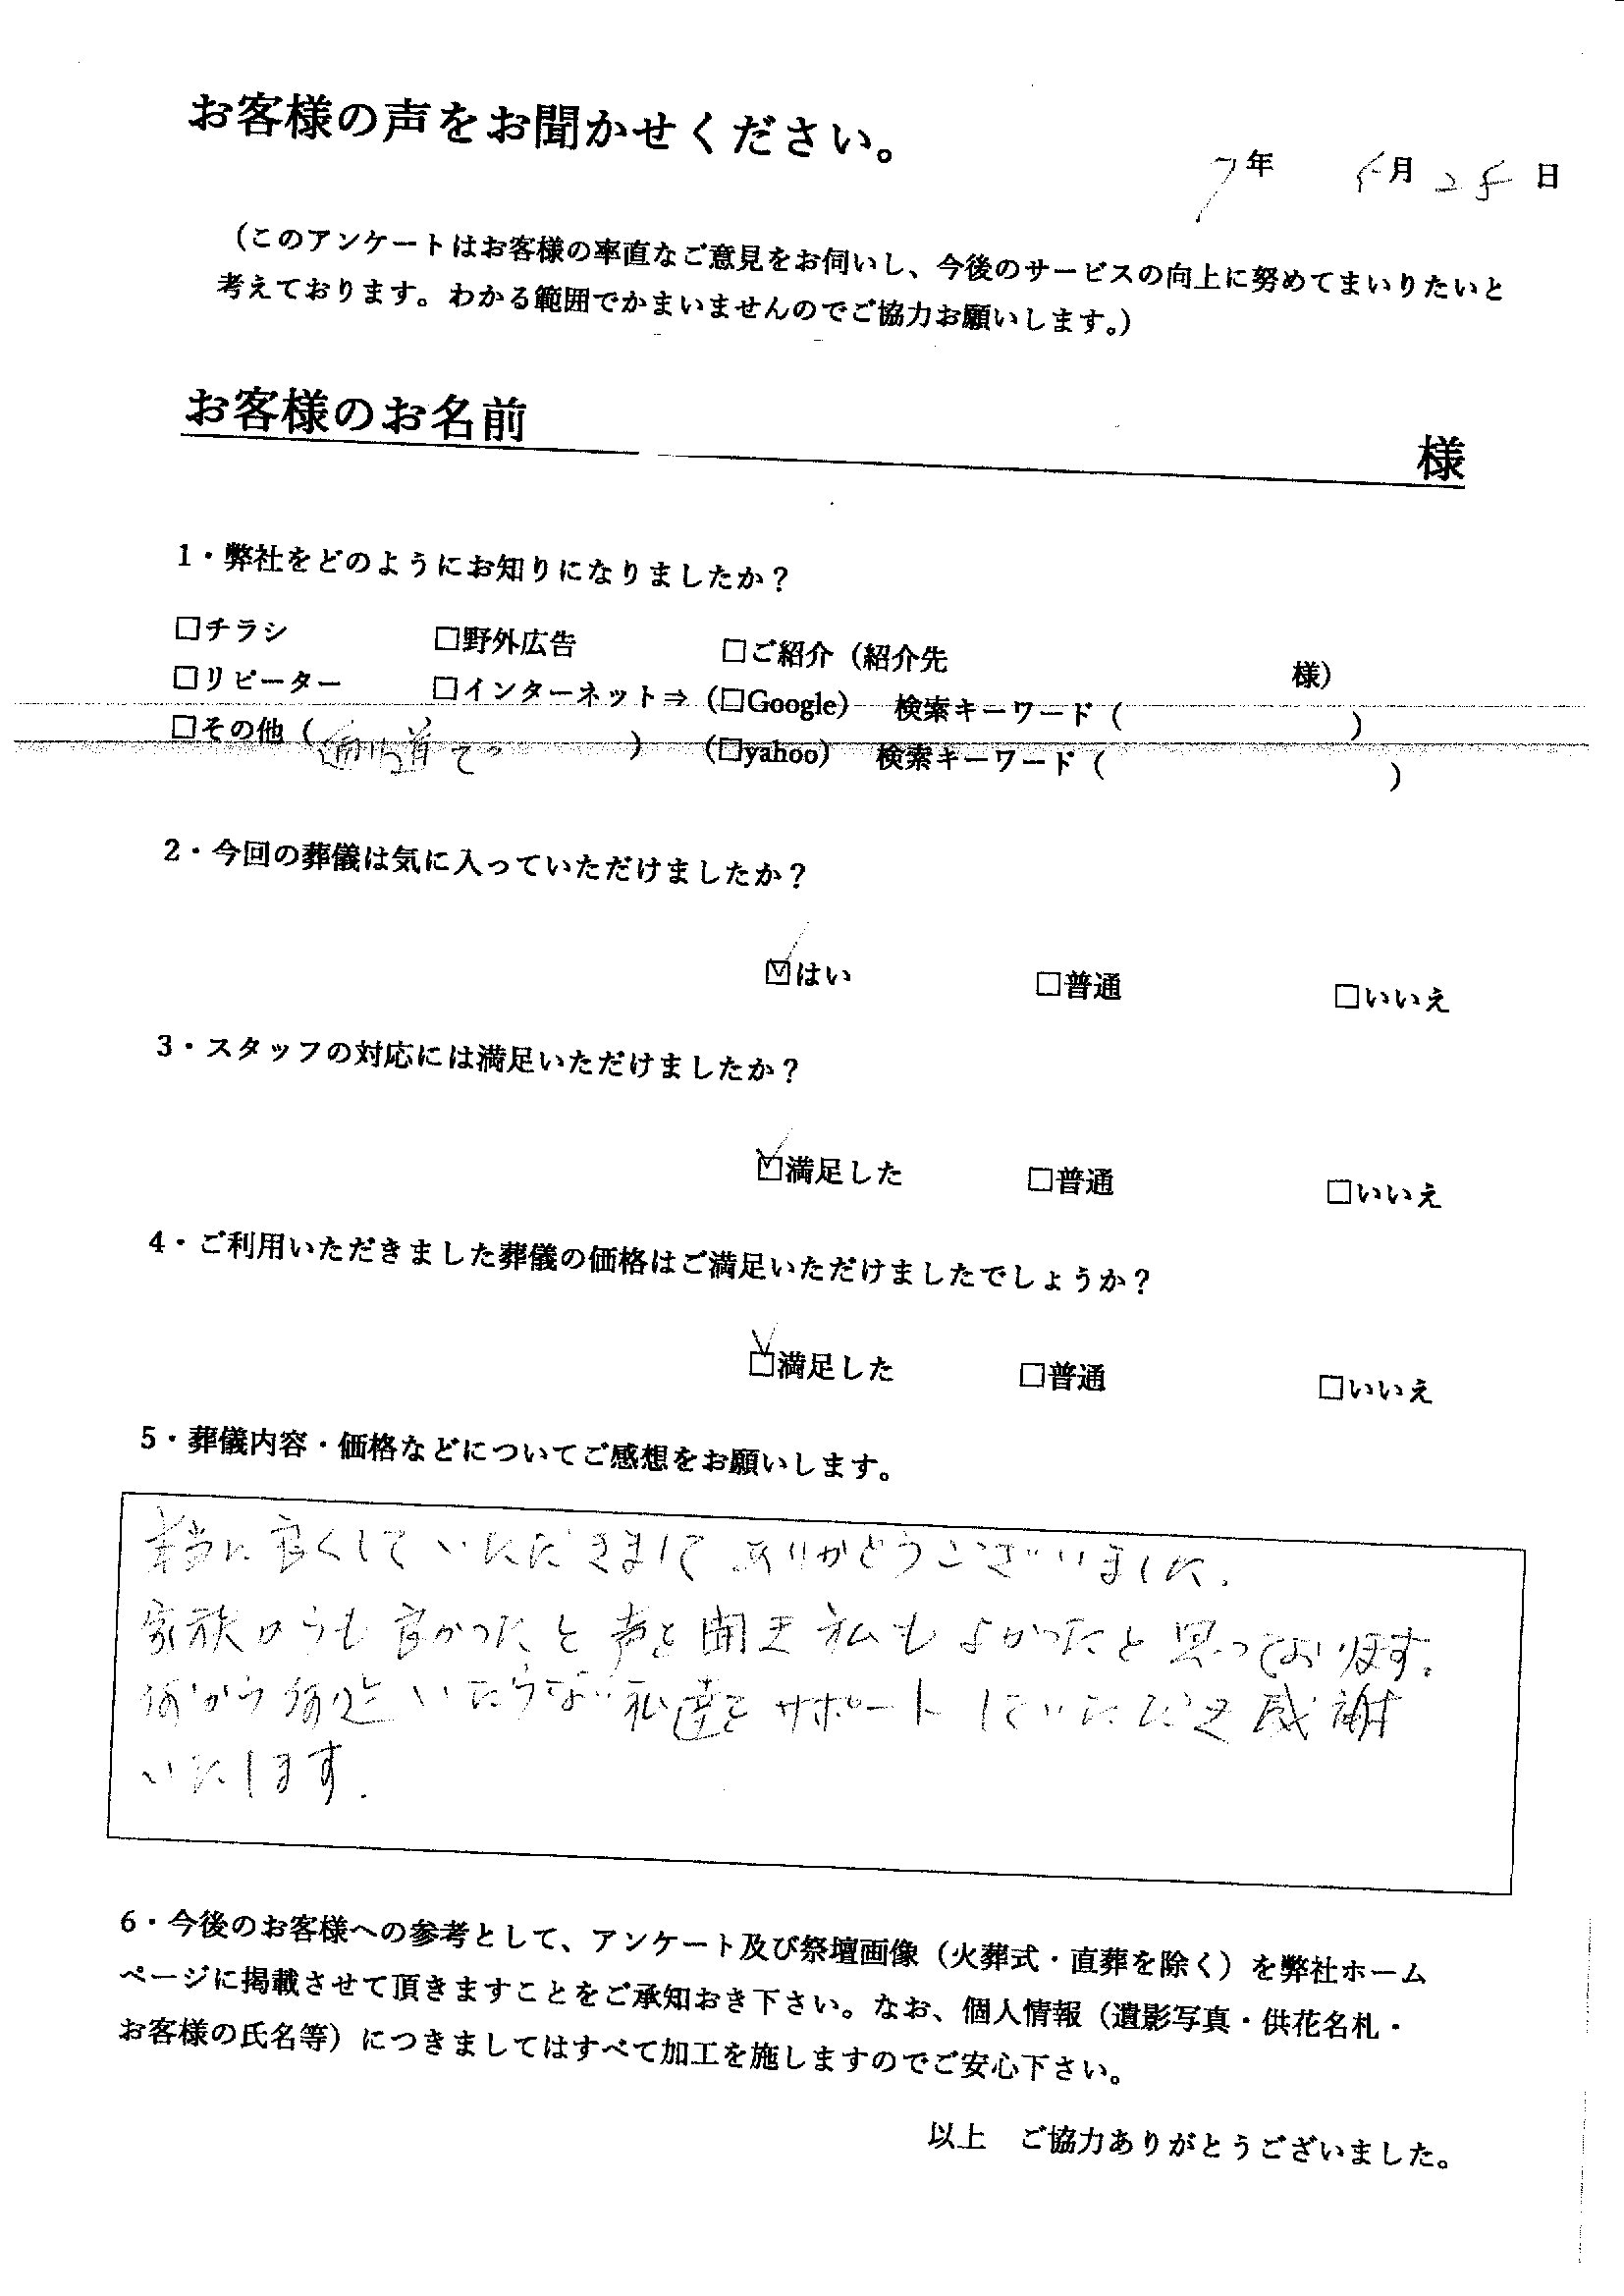 お客様の声をお聞かせください。
7年 5月 25日
（このアンケートはお客様の率直なご意見をお伺いし、今後のサービスの向上に努めてまいりたいと
考えております。わかる範囲でかまいませんのでご協力お願いします。）
お客様のお名前 様
1・弊社をどのようにお知りになりましたか？
□チラシ □野外広告 □ご紹介（紹介先 様）
□リピーター □インターネット⇒（□Google） 検索キーワード（ ）
□その他（ ） （□yahoo） 検索キーワード（ ）
2・今回の葬儀は気に入っていただけましたか？
☑はい □普通 □いいえ
3・スタッフの対応には満足いただけましたか？
☑満足した □普通 □いいえ
4・ご利用いただきました葬儀の価格はご満足いただけましたでしょうか？
☑満足した □普通 □いいえ
5・葬儀内容・価格などについてご感想をお願いします。
本当に良くしていただきましてありがとうございました.
家族からも良かったと声を聞き私もよかったと思っております.
何から何迄いたらない私達をサポートしていただき感謝
いたします.
6・今後のお客様への参考として、アンケート及び祭壇画像（火葬式・直葬を除く）を弊社ホーム
ページに掲載させて頂きますことをご承知おき下さい。なお、個人情報（遺影写真・供花名札・
お客様の氏名等）につきましてはすべて加工を施しますのでご安心下さい。
以上 ご協力ありがとうございました。